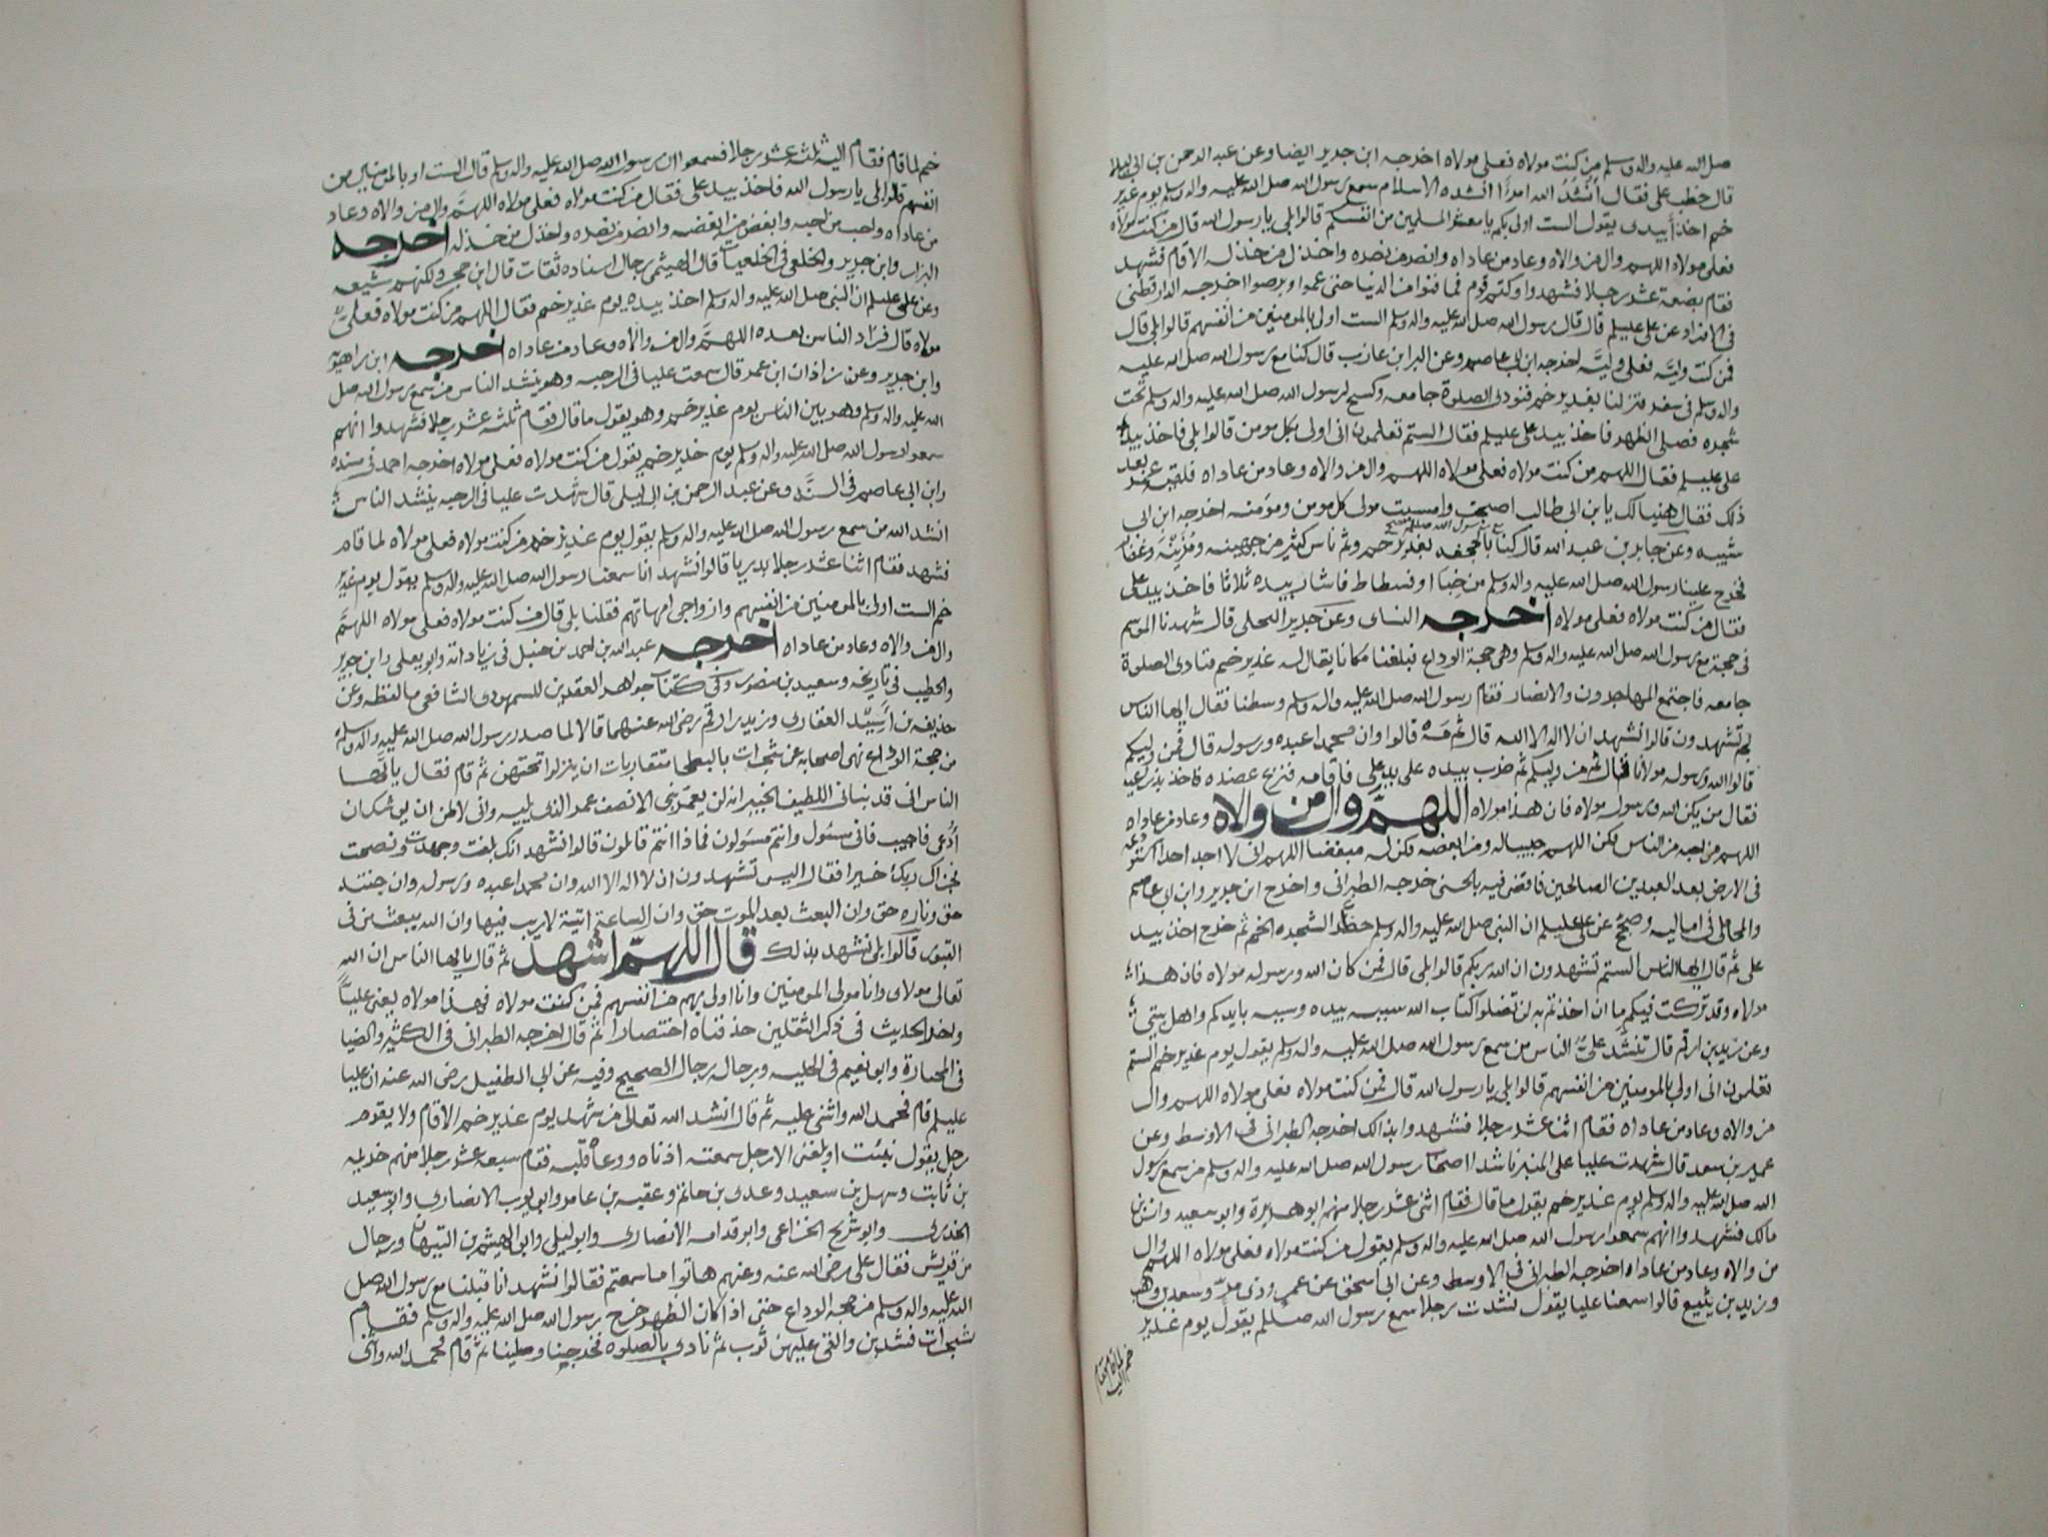 صلى الله عليه واله وسلم من كنت مولاه فعلى مولاه اخرجه ابن جرير ايضا وعن عبد الرحمن بن ابى ليلا
قال خطب على فقال أنشد الله امرأ انشده الاسلام سمع رسول الله صلى الله عليه واله وسلم يوم غدير
خم اخذ بيدى يقول الست اولى بكم يا معشر المسلمين من انفسكم قالوا بلى يا رسول الله قال من كنت مولاه
فعلى مولاه اللهم وال من والاه وعاد من عاداه وانصر من نصره واخذل من خذله الا قام فشهد
فقام بضعة عشر رجلا فشهدوا وكتم قوم فما فنوا من الدنيا حتى عموا وبرصوا اخرجه الدارقطنى
فى الافراد عن على عليلم قال قال رسول الله صلى الله عليه واله وسلم الست اولى بالمومنين من انفسهم قالوا بلى قال
فمن كنت وليه فعلى وليه اخرجه ابن ابى عاصم وعن البرا بن عازب قال كنا مع رسول الله صلى الله عليه
واله وسلم فى سفر فنزلنا بغدير خم فنودى الصلوة جامعه وكسح لرسول الله صلى الله عليه واله وسلم تحت
شجره فصلى الظهر فاخذ بيد على عليلم فقال الستم تعلمون انى اولى بكل مومن قالوا بلى فاخذ بيد
على عليلم فقال اللهم من كنت مولاه فعلى مولاه اللهم وال من والاه وعاد من عاداه فلقيه عمر بعد
ذلك فقال هنيا لك يا بن ابى طالب اصبحت وامسيت مولى كل مومن ومؤمنه اخرجه ابن ابى
شيبه وعن جابر بن عبد الله قال كنا بالجحفه بغدير خم وثم ناس كثير من جهينه ومزينه وغفار
فخرج علينا رسول الله صلى الله عليه واله وسلم من خبا او فسطاط فاشار بيده ثلاثا فاخذ بيد على
فقال من كنت مولاه فعلى مولاه اخرجه النساى وعن جرير البجلى قال شهدنا الموسم
فى حجة مع رسول الله صلى الله عليه واله وسلم وهى حجة الوداع فبلغنا مكانا يقال له غدير خم فنادى الصلوة
جامعه فاجتمع المهاجرون والانصار فقام رسول الله صلى الله عليه واله وسلم وسطنا فقال ايها الناس
بم تشهدون قالوا نشهد ان لا اله الا الله قال ثم مه قالوا وان محمدا عبده ورسوله قال فمن وليكم
قالوا الله ورسوله مولانا قال ثم من وليكم ثم ضرب بيده على يد على فاقامه فنزع عضده فاخذ بذراعيه
فقال من يكن الله ورسوله مولاه فان هذا مولاه اللهم وال من والاه وعاد من عاداه
اللهم من احبه من الناس فكن اللهم حبيبا له ومن ابغضه فكن له مبغضا اللهم انى لا اجد احدا استودعه
فى الارض بعد العبدين الصالحين فاقض فيه بالحسنى خرجه الطبرانى واخرج ابن جرير وابن ابى عاصم
والمحاملى فى اماليه وصحح عن على عليلم ان النبى صلى الله عليه واله وسلم حظر الشجره الخم ثم خرج اخذ بيد
على ثم قال ايها الناس الستم تشهدون ان الله ربكم قالوا بلى قال فمن كان الله ورسوله مولاه فان هذا
مولاه وقد تركت فيكم ما ان اخذتم به لن تضلوا كتاب الله سببه بيده وسببه بايديكم واهل بيتى
وعن زيد بن ارقم قال نشد على الناس من سمع رسول الله صلى الله عليه واله وسلم يقول يوم غدير خم الستم
تعلمون انى اولى بالمومنين من انفسهم قالوا بلى يا رسول الله قال فمن كنت مولاه فعلى مولاه اللهم وال
من والاه وعاد من عاداه فقام اثنا عشر رجلا فشهدوا بذالك اخرجه الطبرانى فى الاوسط وعن
عمير بن سعد قال شهدت عليا على المنبر ناشد اصحاب رسول الله صلى الله عليه واله وسلم من سمع رسول
الله صلى الله عليه واله وسلم يوم غدير خم يقول ما قال فقام اثنى عشر رجلا منهم ابو هريرة وابو سعيد وانس بن
مالك فشهدوا انهم سمعوا رسول الله صلى الله عليه واله وسلم يقول من كنت مولاه فعلى مولاه اللهم وال
من والاه وعاد من عاداه اخرجه الطبرانى فى الاوسط وعن ابى اسحق عن عمرو ذى مر وسعد بن وهب
وزيد بن يثيع قالوا سمعنا عليا يقول نشدت رجلا سمع رسول الله صللم يقول يوم غدير
خم لما قام فقام اليه
خم لما قام فقام اليه ثلثه عشر رجلا فسمعوا ان رسول الله صلى الله عليه واله وسلم قال الست اولى بالمومنين من
انفسهم قالوا بلى يا رسول الله فاخذ بيد على فقال من كنت مولاه فعلى مولاه اللهم وال من والاه وعاد
من عاداه واحب من احبه وابغض من ابغضه وانصر من نصره واخذل من خذله اخرجه
البزار وابن جرير والخلعى فى الخلعيات قال الهيثمى رجال اسناده ثقات قال ابن حجر ولكنهم شيعه
وعن على عليلم ان النبى صلى الله عليه واله وسلم اخذ بيده يوم غدير خم فقال اللهم من كنت مولاه فعلى
مولاه قال فزاد الناس بعده اللهم وال من والاه وعاد من عاداه اخرجه ابن راهويه
وابن جرير وعن زاذان ابن عمر قال سمعت عليا فى الرحبه وهو ينشد الناس من سمع رسول الله صلى
الله عليه واله وسلم وهو بين الناس يوم غدير خم وهو يقول ما قال فقام ثلثه عشر رجلا فشهدوا انهم
سمعوا رسول الله صلى الله عليه واله وسلم يوم غدير خم يقول من كنت مولاه فعلى مولاه اخرجه احمد فى مسنده
وابن ابى عاصم فى السنه وعن عبد الرحمن بن ابى ليلى قال شهدت عليا فى الرحبه ينشد الناس
انشد الله من سمع رسول الله صلى الله عليه واله وسلم يقول يوم غدير خم من كنت مولاه فعلى مولاه لما قام
فشهد فقام اثنا عشر رجلا بدريا قالوا نشهد انا سمعنا رسول الله صلى الله عليه واله وسلم يقول يوم غدير
خم الست اولى بالمومنين من انفسهم وازواجى امهاتهم فقلنا بلى قال من كنت مولاه فعلى مولاه اللهم
وال من والاه وعاد من عاداه اخرجه عبد الله بن احمد بن حنبل فى زياداته وابو يعلى وابن جرير
والخطيب فى تاريخه وسعيد بن منصور وفى كتاب جواهر العقدين للسمهودى الشافعى ما لفظه وعن
حذيفه بن أسيد الغفارى وزيد بن ارقم رضى الله عنهما قالا لما صدر رسول الله صلى الله عليه واله وسلم
من حجة الوداع نهى اصحابه عن شجرات بالبطحا متقاربات ان ينزلوا تحتهن ثم قام فقال يا ايها
الناس انى قد نبانى اللطيف الخبير انه لن يعمر نبى الا نصف عمر الذى يليه وانى لاظن ان يوشك ان
أدعى فاجيب فانى مسئول وانتم مسؤلون فماذا انتم قائلون قالوا نشهد انك بلغت وجهدت ونصحت
فجزاك ربك خيرا فقال اليس تشهدون ان لا اله الا الله وان محمدا عبده ورسوله وان جنته
حق وناره حق وان البعث بعد الموت حق وان الساعة اتية لا ريب فيها وان الله يبعث من فى
القبور قالوا بلى نشهد بذلك قال اللهم اشهد ثم قال يا ايها الناس ان الله
تعالى مولاى وانا مولى المومنين وانا اولى بهم من انفسهم فمن كنت مولاه فهذا مولاه يعنى علياً
واخر الحديث فى ذكر الثقلين حذفناه اختصارا ثم قال اخرجه الطبرانى فى الكبير والضيا
فى المختارة وابو نعيم فى الحليه ورجاله رجال الصحيح وفيه عن ابى الطفيل رضى الله عنه ان عليا
عليلم قام فحمد الله واثنى عليه ثم قال انشد الله تعالى من شهد يوم غدير خم الا قام ولا يقوم
رجل يقول نبئت او بلغنى الا رجل سمعته اذناه ووعاه قلبه فقام سبعه عشر رجلا منهم خزيمه
بن ثابت وسهل بن سعيد وعدى بن حاتم وعقبه بن عامر وابى ايوب الانصارى وابو سعيد
الخدرى وابو شريح الخزاعى وابو قدامه الانصارى وابو ليلى وابى الهيثم بن التيهان ورجال
من قريش فقال على رضى الله عنه وعنهم هاتوا ما سمعتم فقالوا نشهد انا قبلنا مع رسول الله صلى
الله عليه واله وسلم من حجة الوداع حتى اذا كان الظهر خرج رسول الله صلى الله عليه واله وسلم فقام
شجرات فشدبن والقى عليهن ثوب ثم نادى بالصلوه فخرجنا وصلينا ثم قام فحمد الله واثنى